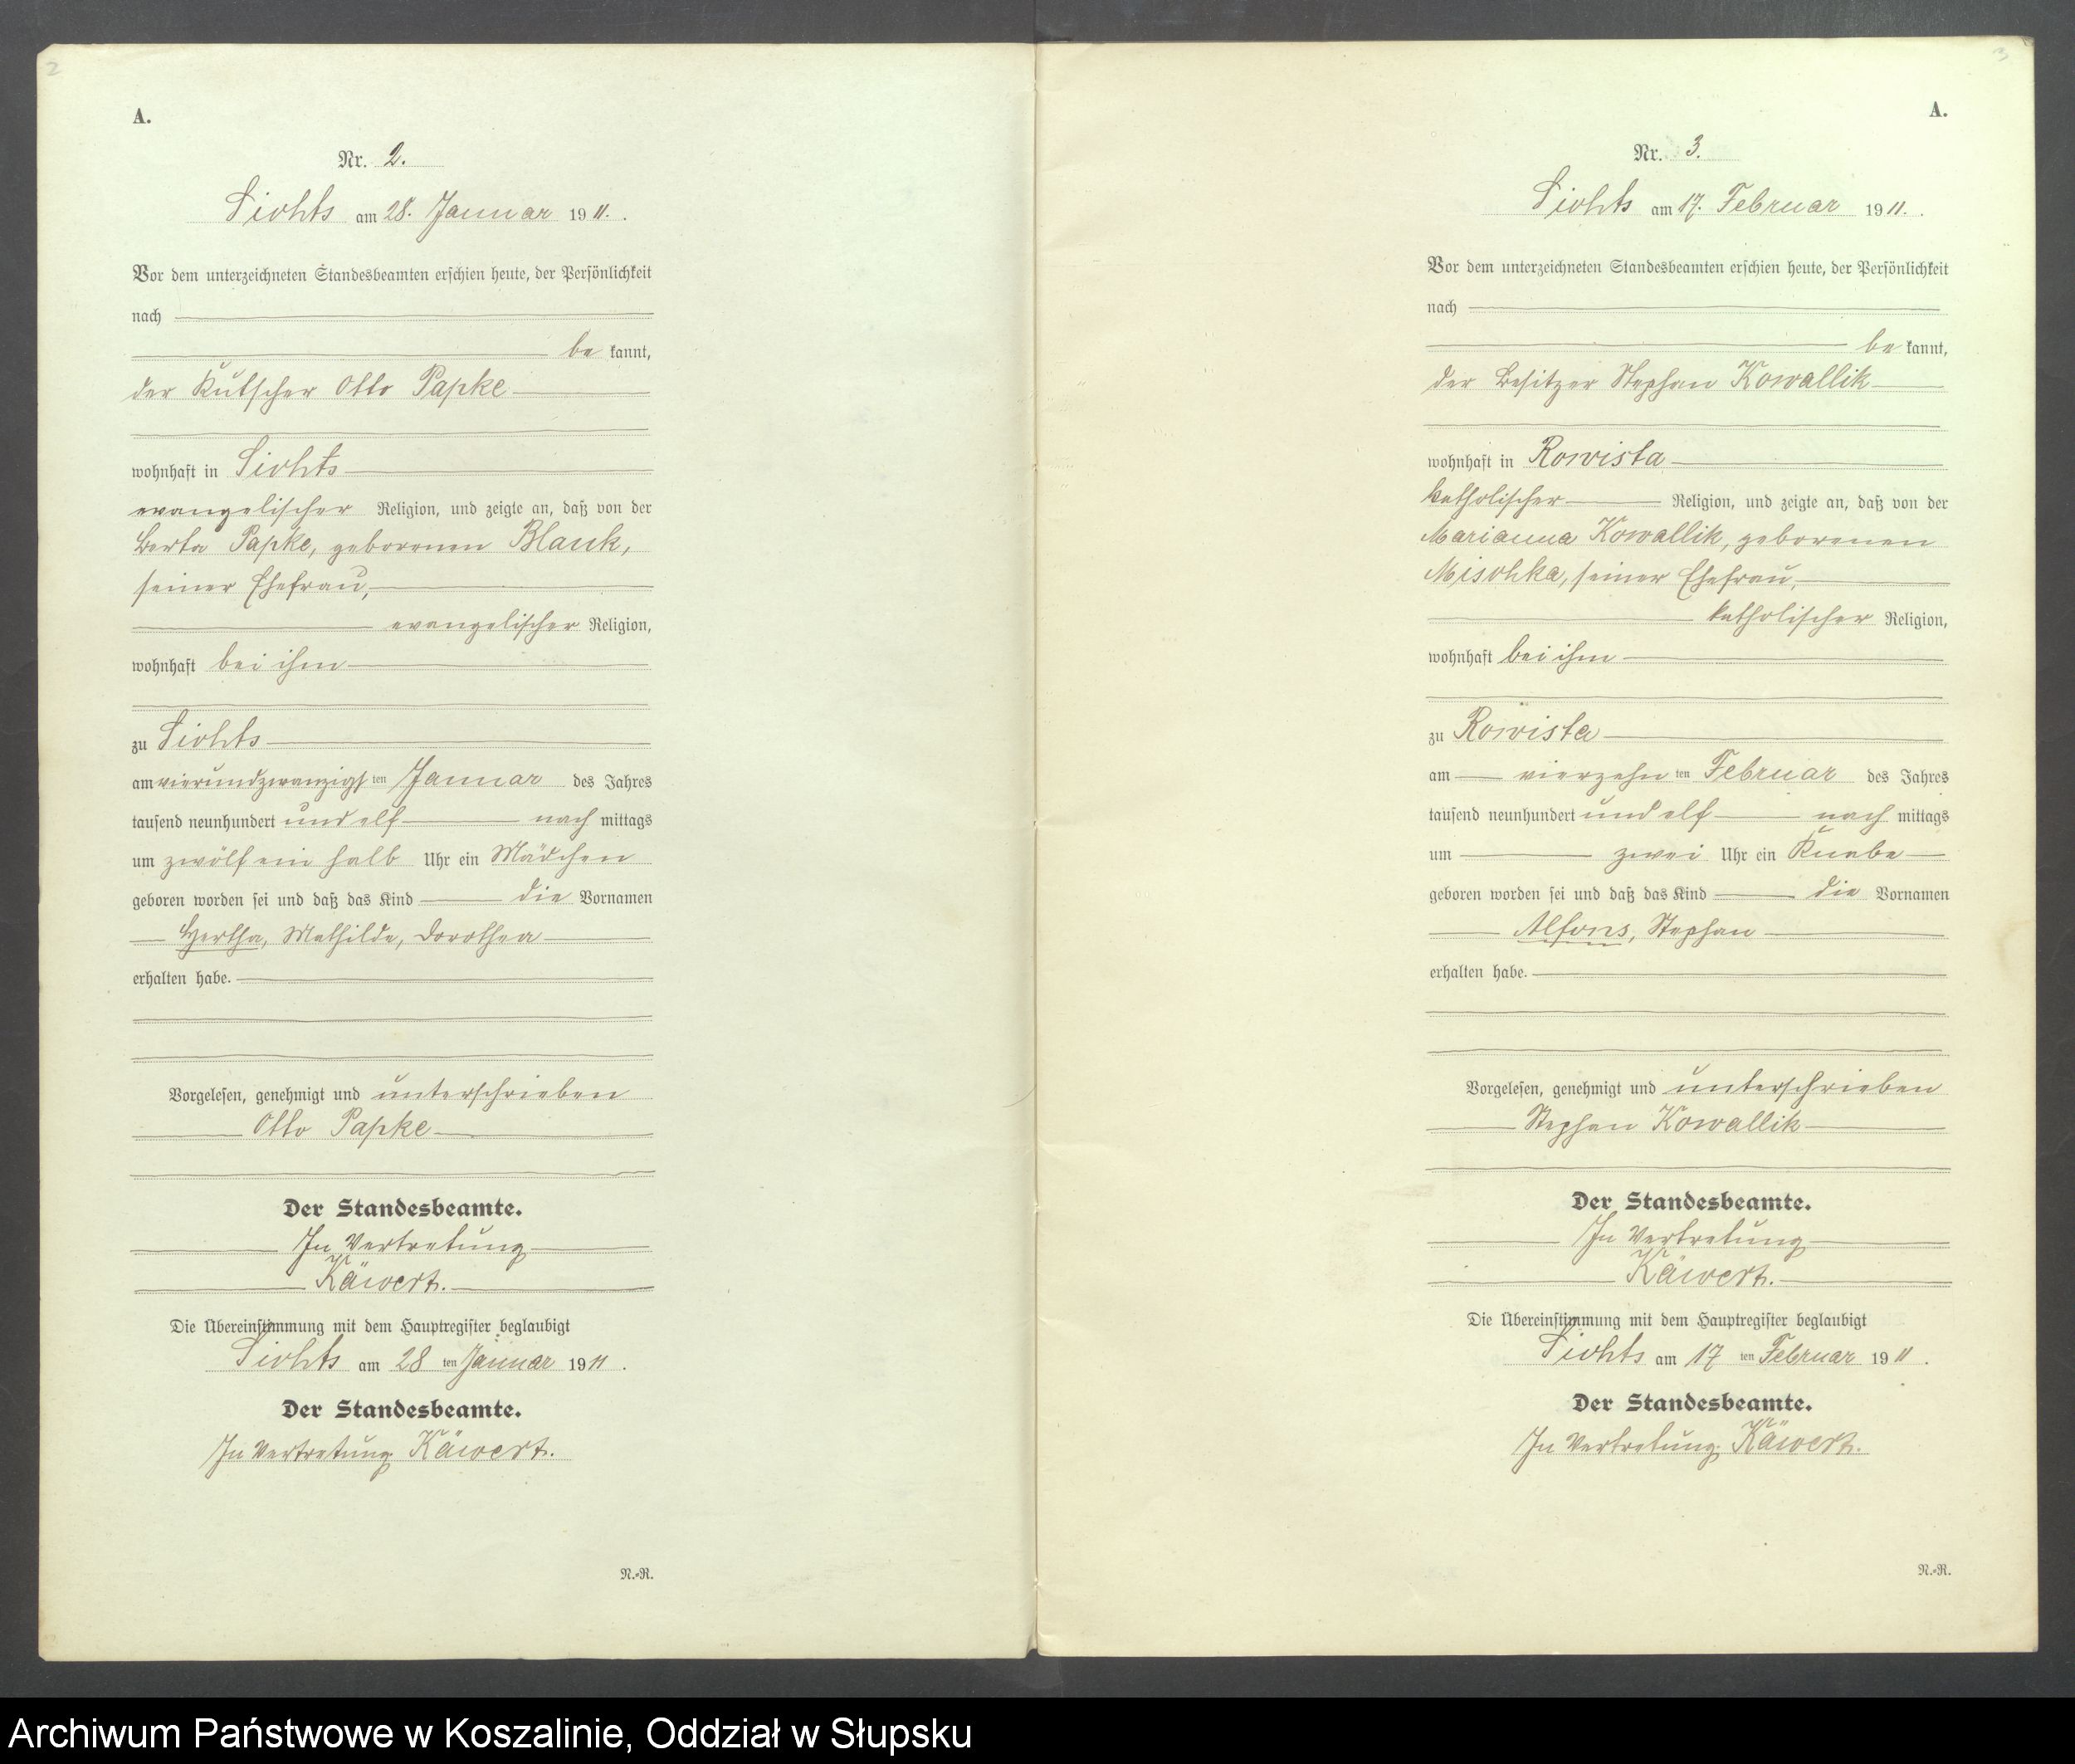 2
A.
Nr. 2.
Sichts am 28. Januar 1911.
Vor dem unterzeichneten Standesbeamten erschien heute, der Persönlichkeit
nach
be kannt,
der Kutscher Otto Papke
wohnhaft in Sichts
evangelischer Religion, und zeigte an, daß von der
Berta Papke, geborenen Blank,
seiner Ehefrau,
evangelischer Religion,
wohnhaft bei ihm
zu Sichts
am vierundzwanzigsten Januar des Jahres
tausend neunhundert und elf nach mittags
um zwölf ein halb Uhr ein Mädchen
geboren worden sei und daß das Kind die Vornamen
Hertha, Mathilde, Dorothea
erhalten habe.
Vorgelesen, genehmigt und unterschrieben
Otto Papke
Der Standesbeamte.
In Vertretung
Käwert.
Die Übereinstimmung mit dem Hauptregister beglaubigt
Sichts am 28 ten Januar 1911.
Der Standesbeamte.
In Vertretung Käwert.
N.-R.
3
A.
Nr. 3.
Sichts am 17. Februar 1911.
Vor dem unterzeichneten Standesbeamten erschien heute, der Persönlichkeit
nach
be kannt,
der Besitzer Stephan Kowallik
wohnhaft in Rowista
katholischer Religion, und zeigte an, daß von der
Marianna Kowallik, geborenen
Mischka, seiner Ehefrau,
katholischer Religion,
wohnhaft bei ihm
zu Rowista
am vierzehn ten Februar des Jahres
tausend neunhundert und elf nach mittags
um zwei Uhr ein Knabe
geboren worden sei und daß das Kind die Vornamen
Alfons, Stephan
erhalten habe.
Vorgelesen, genehmigt und unterschrieben
Stephan Kowallik
Der Standesbeamte.
In Vertretung
Käwert.
Die Übereinstimmung mit dem Hauptregister beglaubigt
Sichts am 17 ten Februar 1911.
Der Standesbeamte.
In Vertretung Käwert.
N.-R.
Archiwum Państwowe w Koszalinie, Oddział w Słupsku